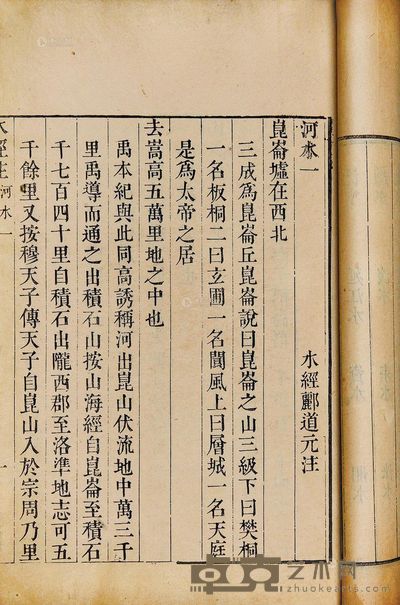 河水一
水經酈道元注
崑崙墟在西北
三成爲崑崙丘崑崙說曰崑崙之山三級下曰樊桐
一名板桐二曰玄圃一名閬風上曰層城一名天庭
是爲太帝之居
去嵩高五萬里地之中也
禹本紀與此同高誘稱河出崑山伏流地中萬三千
里禹導而通之出積石山按山海經自崑崙至積石
千七百四十里自積石出隴西郡至洛準地志可五
千餘里又按穆天子傳天子自崑山入於宗周乃里
水經注 河水一
一
艺术网
zhuokearts.com